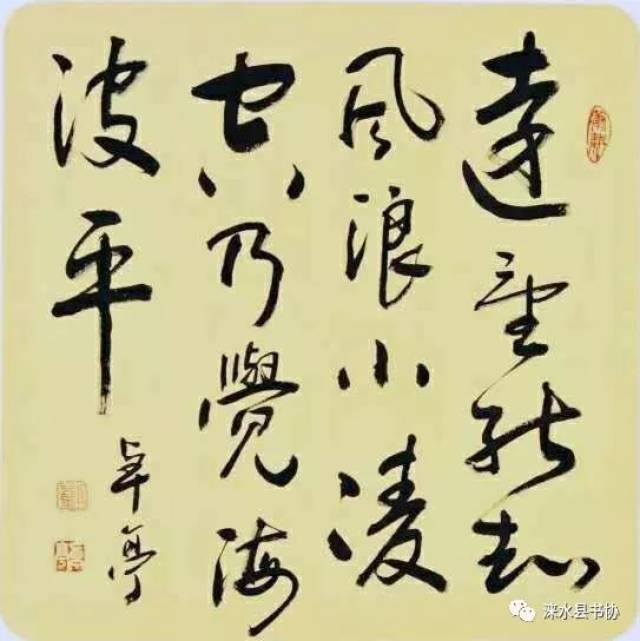 遠望能知
風浪小凌
空乃覺海
波平
卓亭
涞水县书协